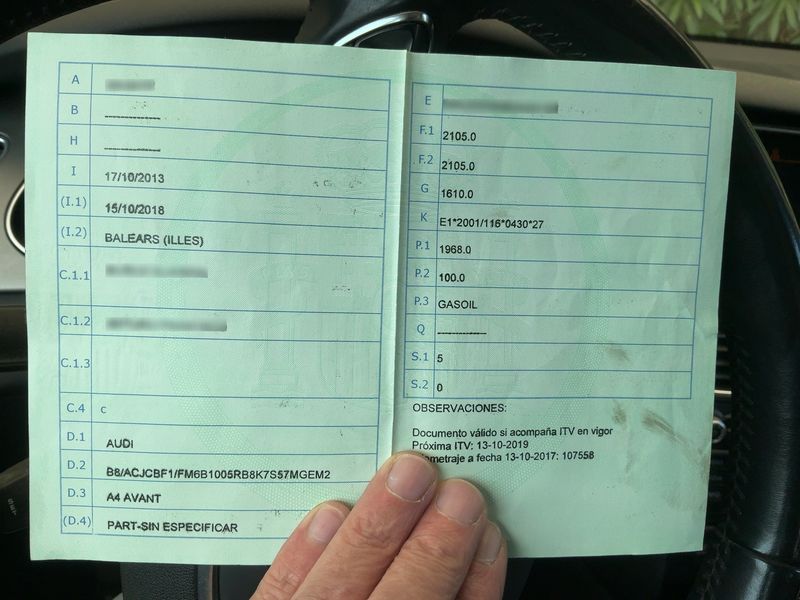 A
B ----------------
H ----------------
I 17/10/2013
(I.1) 15/10/2018
(I.2) BALEARS (ILLES)
C.1.1
C.1.2
C.1.3
C.4 c
D.1 AUDI
D.2 B8/ACJCBF1/FM6B1005RB8K7S57MGEM2
D.3 A4 AVANT
(D.4) PART-SIN ESPECIFICAR
E
F.1 2105.0
F.2 2105.0
G 1610.0
K E1*2001/116*0430*27
P.1 1968.0
P.2 100.0
P.3 GASOIL
Q ----------------
S.1 5
S.2 0
OBSERVACIONES:
Documento válido si acompaña ITV en vigor
Próxima ITV: 13-10-2019
a fecha 13-10-2017: 107558